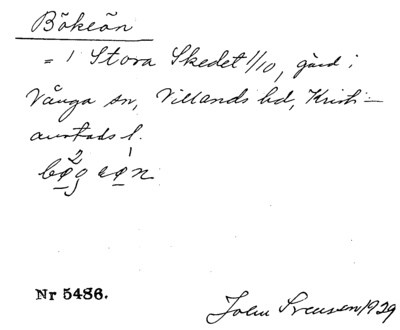 Bökeön
= 1 Stora Skedet 1/10, gård i
Vånga sn, Villands hd, Kristi-
anstads l.
Nr 5486.
John Svensson 1929